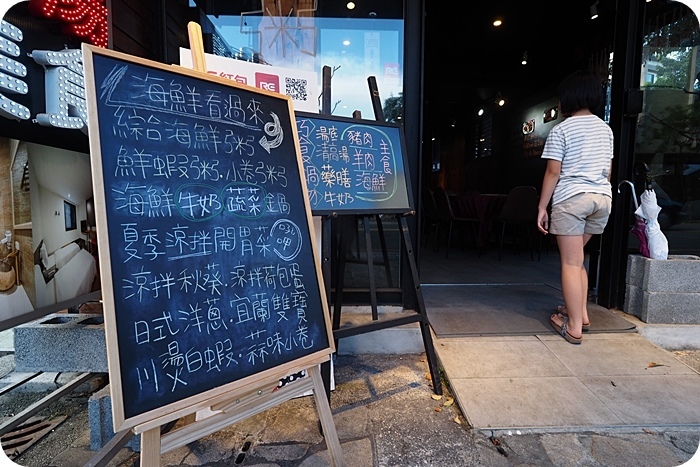 海鮮看過來
綜合海鮮粥
鮮蝦粥.小卷粥
海鮮牛奶蔬菜鍋
夏季涼拌開胃菜
涼拌秋葵.涼拌荷包蛋
日式洋蔥.宜蘭雙寶
川燙白蝦.蒜味小卷
紅包
湯底 豬肉 主
清湯 羊肉 食
鍋 藥膳 海鮮
牛奶